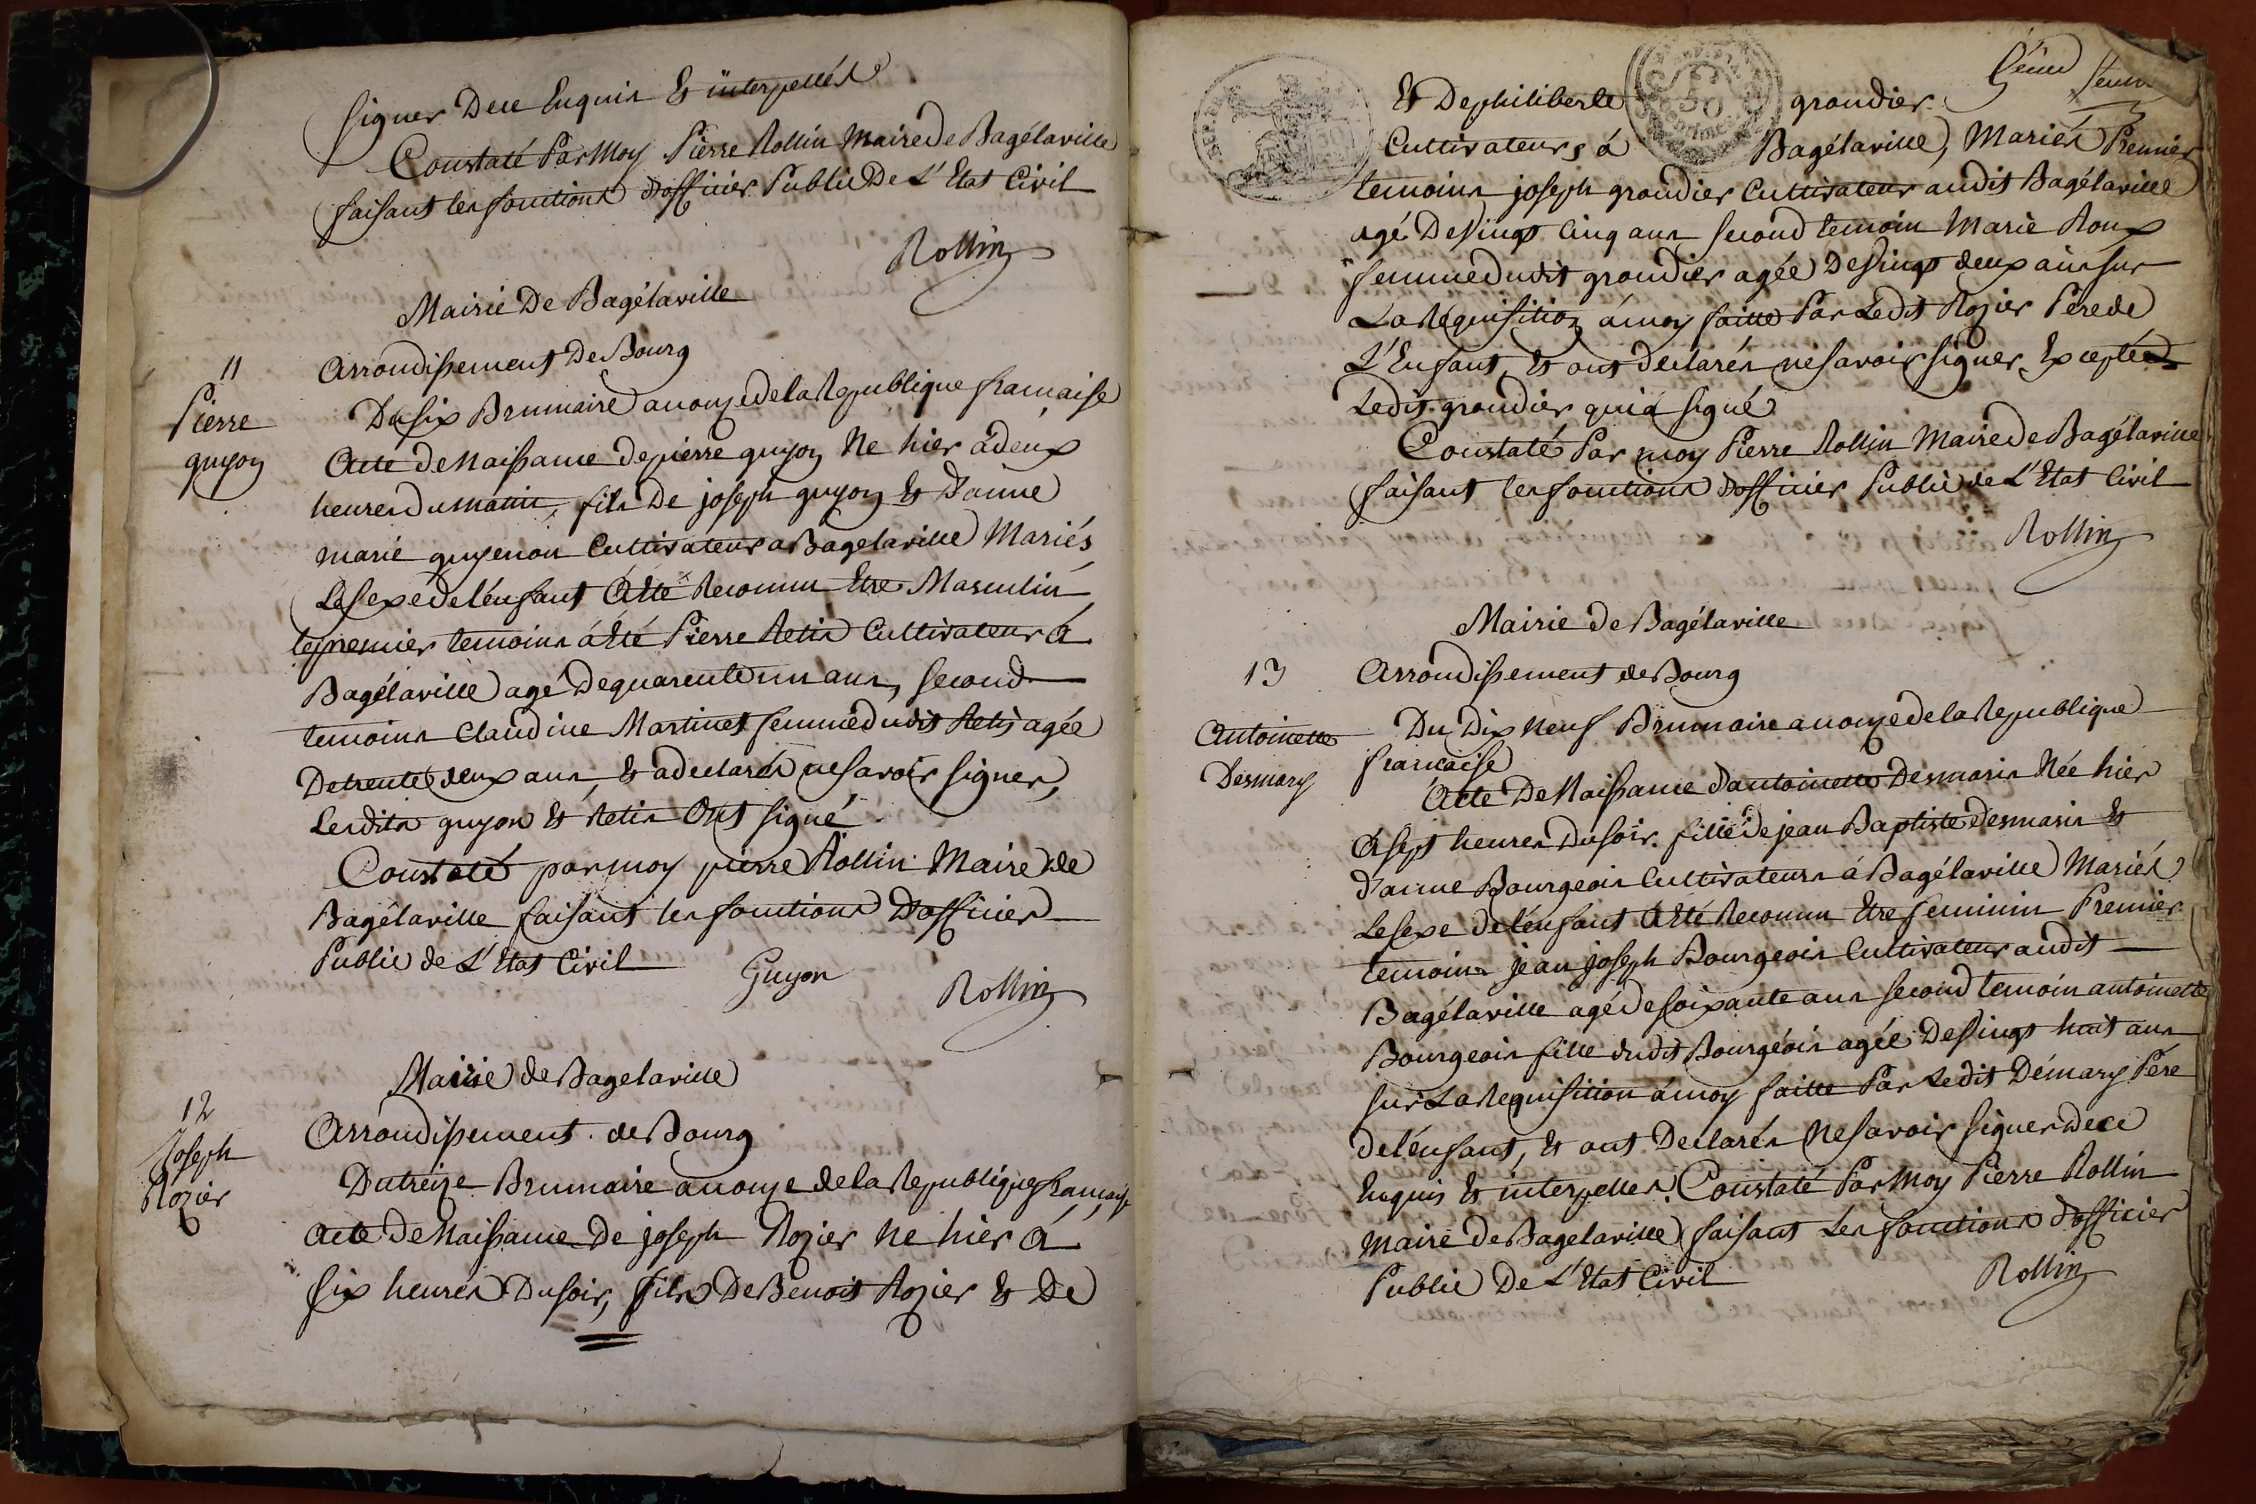 signer De ce Enquis Et interpellés
Constaté Par Moy Pierre Rollin Maire de Bagélaville
faisant les fonctions d'officier Public De L'Etat Civil
Rollin
Mairie De Bagélaville
11
Arrondissement De Bourg
Pierre
guyon
Du six Brumaire an onze de la Republique francaise
Acte de Naissance de pierre guyon Ne hier à deux
heures du matin, fils De joseph guyon Et D'anne
marie guyenon Cultivateurs a Bagélaville Mariés
Le sexe de l'énfant A Eté Reconnu Etre Masculin
le premier temoins á Eté Pierre Retis Cultivateur á
Bagélaville agé De quarente un ans, second
temoins Claudine Martinet femme dudit Retis agée
De trente deux ans, Et a declarés ne savoir signer,
Lesdits guyon Et Retis Ont signé
Constaté par moy pierre Rollin Maire de
Bagélaville faisant les fonctions D'officier
Public de L'Etat Civil
Guyon
Rollin
Mairie de Bagélaville
12
Arrondissement de Bourg
Joseph
Rozier
Du treize Brumaire an onze de la Republique francaise
Acte de Naissance De joseph Rozier Ne hier á
six heures Du soir, fils De Benoit Rozier Et De
Et De philiberte grandier
Cultivateurs á Bagélaville, Mariés Premier
temoins joseph grandier Cultivateur audit Bagélaville
agé De Vingt Cinq ans second temoin Marie Roux
femme dudit grandier agée De Vingt deux ans sur
La Réquisition á moy faitte Par Ledit Rozier Pere de
L'Enfant, Et ont declarés ne savoir signer, Excepté
Ledit grandier qui á signé
Constaté Par moy Pierre Rollin Maire de Bagélaville
faisant les fonctions D'officier Public de L'Etat Civil
Rollin
Mairie de Bagélaville
13
Arrondissement de Bourg
Antoinette
Desmary
Du Dix neuf Brumaire an onze de la Republique
francaise
Acte De Naissance d'antoinette Desmaris Née hier
á sept heures Du soir. fille de jean Baptiste desmaris Et
d'anne Bourgeois Cultivateurs á Bagélaville Mariés
Le sexe de l'énfant A Eté Reconnu Etre feminin Premier
temoins jean joseph Bourgeois Cultivateur audit
Bagélaville agé de soixante ans second temoin antoinette
Bourgeois fille dudit Bourgéois agée De Vingt huit ans
sur La Requisition á moy faitte Par Ledit Démary Pére
de l'énfant, Et ont Declarés Ne savoir signer de ce
Enquis Et interpelles. Constaté Par Moy Pierre Rollin
Maire De Bagélaville faisant Les fonctions d'officier
Public De L'Etat Civil
Rollin